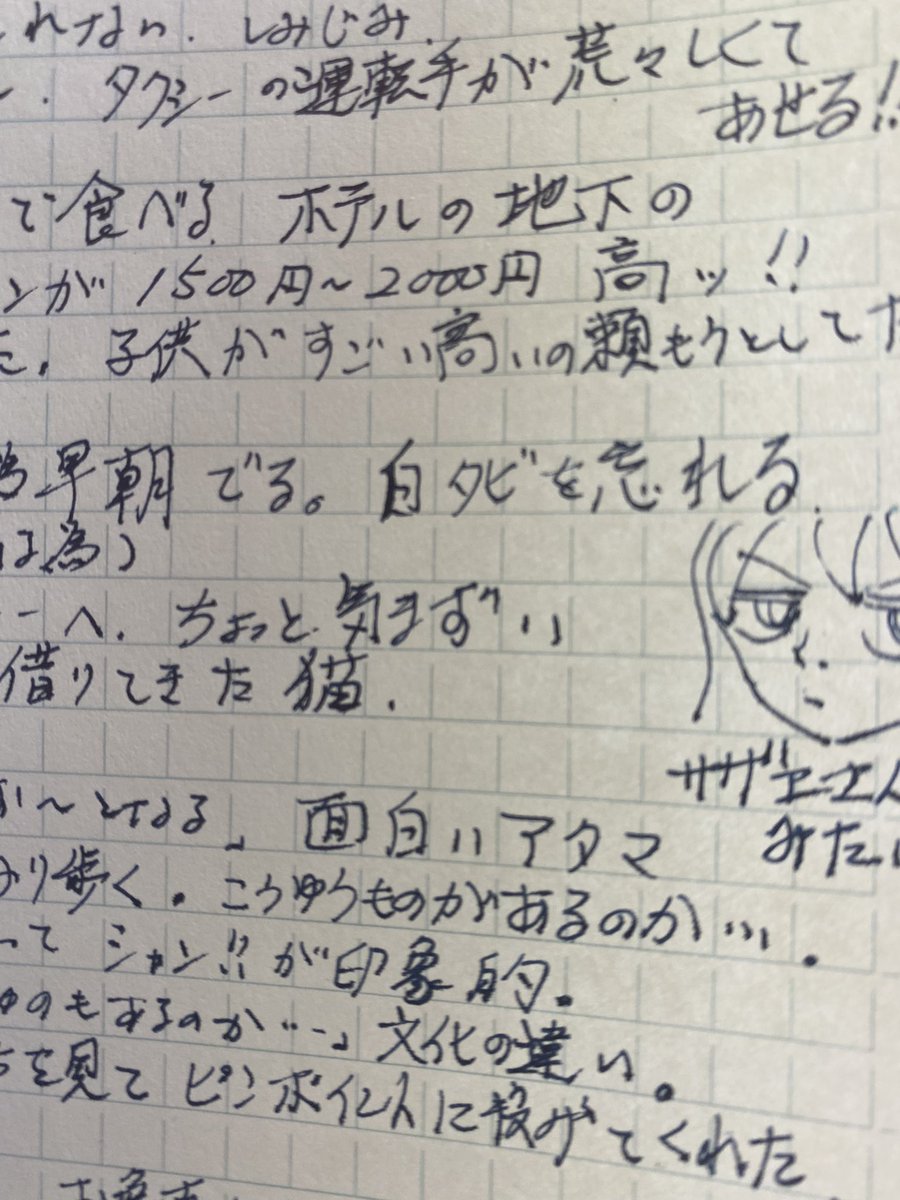 れない. しみじみ.
. タクシーの運転手が荒々しくて
あせる!!
で食べる ホテルの地下の
ンが 1500円~2000円 高ッ!!
た. 子供がすごい高いの頼もうとしてた
早朝 でる。自タビを忘れる.
は為)
ーへ. ちょっと気まずい
借りてきた猫.
サザエさん
みたい
か~となる、面白いアタマ
り歩く。こうゆうものがあるのか….
って シャン!! が印象的。
ゆのもあるのか…、文化の違い。
を見て ピンポイントに投げてくれた